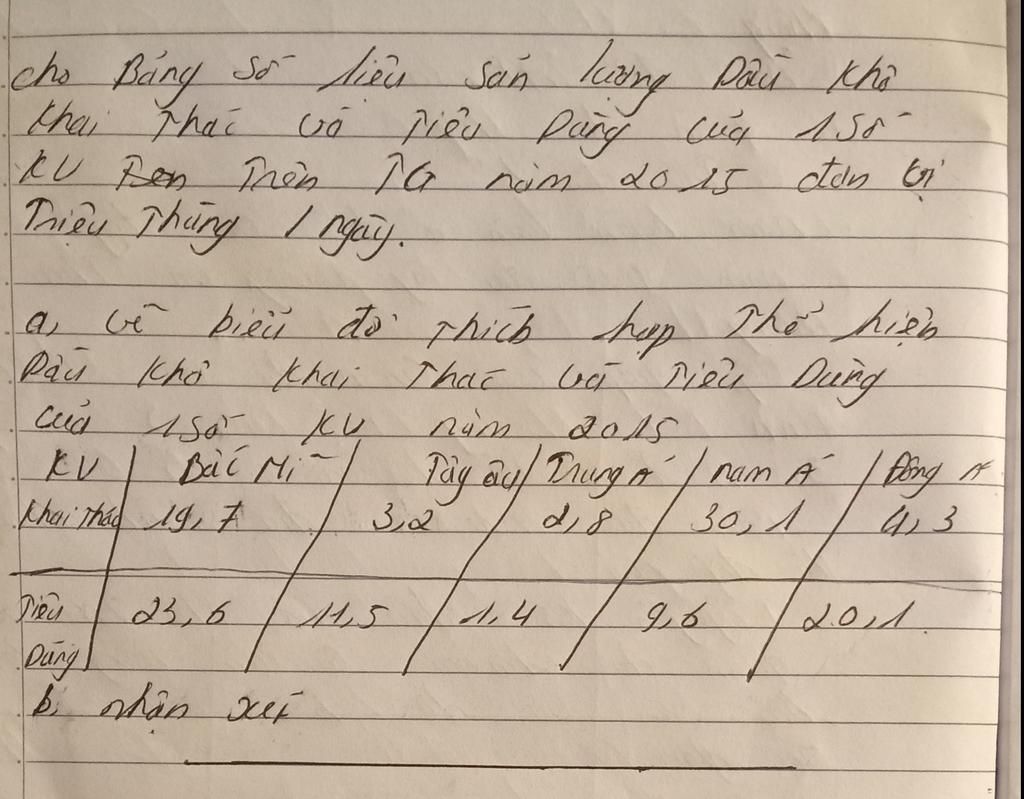 cho Bảng Số liệu Sản lượng Dầu Khô
Khai Thác Và Tiêu Dùng của 1 Số
KV Trên TG năm 2015 đơn vị
Triệu Thùng / ngày.
a, Vẽ biểu đồ Thích hợp Thể hiện
Dầu Khô Khai Thác Và Tiêu Dùng
của 1 Số KV năm 2015
KV Bắc Mĩ Tây âu Trung Á nam Á Đông Á
Khai Thác 19,7 3,2 2,8 30,1 4,3
Tiêu 23,6 11,5 1,4 9,6 20,1
Dùng
b, nhận xét